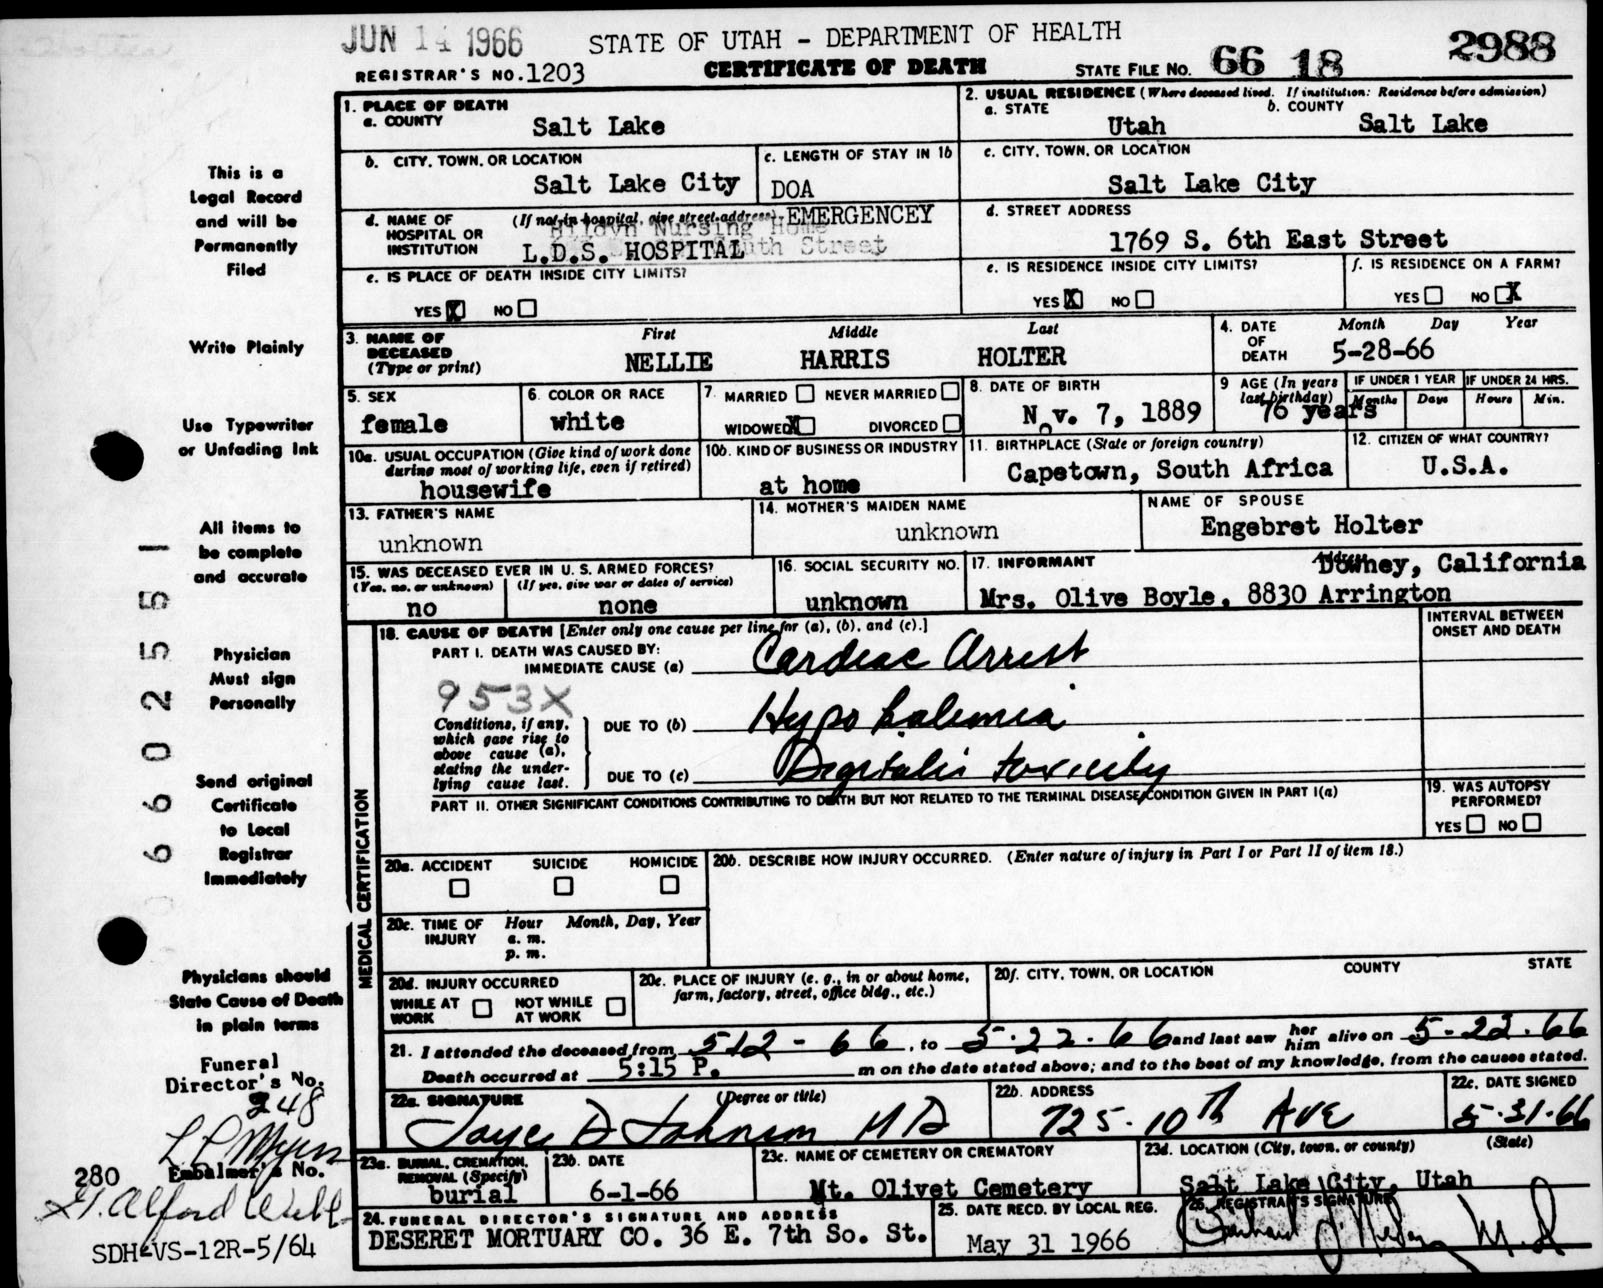 JUN 14 1966
STATE OF UTAH - DEPARTMENT OF HEALTH
2988
REGISTRAR'S NO. 1203
CERTIFICATE OF DEATH
STATE FILE NO. 66 18
1. PLACE OF DEATH
a. COUNTY
Salt Lake
2. USUAL RESIDENCE (Where deceased lived. If institution: Residence before admission)
a. STATE
Utah
b. COUNTY
Salt Lake
b. CITY, TOWN, OR LOCATION
Salt Lake City
c. LENGTH OF STAY IN 1b
DOA
c. CITY, TOWN, OR LOCATION
Salt Lake City
d. NAME OF HOSPITAL OR INSTITUTION
(If not in hospital, give street address)
EMERGENCEY
Nursing Home
L.D.S. HOSPITAL
Street
d. STREET ADDRESS
1769 S. 6th East Street
e. IS PLACE OF DEATH INSIDE CITY LIMITS?
YES X NO
e. IS RESIDENCE INSIDE CITY LIMITS?
YES X NO
f. IS RESIDENCE ON A FARM?
YES NO X
3. NAME OF DECEASED (Type or print)
First Middle Last
NELLIE HARRIS HOLTER
4. DATE OF DEATH
Month Day Year
5-28-66
5. SEX
female
6. COLOR OR RACE
white
7. MARRIED NEVER MARRIED
WIDOWED X DIVORCED
8. DATE OF BIRTH
Nov. 7, 1889
9 AGE (In years last birthday)
76 years
IF UNDER 1 YEAR
Months Days
IF UNDER 24 HRS.
Hours Min.
10a. USUAL OCCUPATION (Give kind of work done during most of working life, even if retired)
housewife
10b. KIND OF BUSINESS OR INDUSTRY
at home
11. BIRTHPLACE (State or foreign country)
Capetown, South Africa
12. CITIZEN OF WHAT COUNTRY?
U.S.A.
13. FATHER'S NAME
unknown
14. MOTHER'S MAIDEN NAME
unknown
NAME OF SPOUSE
Engebret Holter
15. WAS DECEASED EVER IN U. S. ARMED FORCES?
(Yes, no, or unknown) (If yes, give war or dates of service)
no none
16. SOCIAL SECURITY NO.
unknown
17. INFORMANT
Address
Downey, California
Mrs. Olive Boyle, 8830 Arrington
MEDICAL CERTIFICATION
18. CAUSE OF DEATH [Enter only one cause per line for (a), (b), and (c).]
INTERVAL BETWEEN ONSET AND DEATH
PART I. DEATH WAS CAUSED BY:
IMMEDIATE CAUSE (a) Cardiac Arrest
953X
Conditions, if any, which gave rise to above cause (a), stating the underlying cause last.
DUE TO (b) Hypokalemia
DUE TO (c) Digitalis toxicity
PART II. OTHER SIGNIFICANT CONDITIONS CONTRIBUTING TO DEATH BUT NOT RELATED TO THE TERMINAL DISEASE CONDITION GIVEN IN PART I(a)
19. WAS AUTOPSY PERFORMED?
YES NO
20a. ACCIDENT SUICIDE HOMICIDE
20b. DESCRIBE HOW INJURY OCCURRED. (Enter nature of injury in Part I or Part II of item 18.)
20c. TIME OF INJURY
Hour Month, Day, Year
a. m.
p. m.
20d. INJURY OCCURRED
WHILE AT WORK NOT WHILE AT WORK
20e. PLACE OF INJURY (e. g., in or about home, farm, factory, street, office bldg., etc.)
20f. CITY, TOWN, OR LOCATION COUNTY STATE
21. I attended the deceased from 512-66, to 5.22.66 and last saw her him alive on 5-22.66
Death occurred at 5:15 P. m on the date stated above; and to the best of my knowledge, from the causes stated.
22a. SIGNATURE (Degree or title)
Joyce D Johnson MD
22b. ADDRESS
725-10th AVE
22c. DATE SIGNED
5-31-66
23a. BURIAL, CREMATION, REMOVAL (Specify)
burial
23b. DATE
6-1-66
23c. NAME OF CEMETERY OR CREMATORY
Mt. Olivet Cemetery
23d. LOCATION (City, town, or county) (State)
Salt Lake City, Utah
24. FUNERAL DIRECTOR'S SIGNATURE AND ADDRESS
DESERET MORTUARY CO. 36 E. 7th So. St.
25. DATE RECD. BY LOCAL REG.
May 31 1966
26. REGISTRAR'S SIGNATURE
M.D.
This is a
Legal Record
and will be
Permanently
Filed
Write Plainly
Use Typewriter
or Unfading Ink
All items to
be complete
and accurate
Physician
Must sign
Personally
Send original
Certificate
to Local
Registrar
Immediately
Physicians should
State Cause of Death
in plain terms
Funeral
Director's No.
248
280 Embalmer's No.
SDH-VS-12R-5/64
66 02551